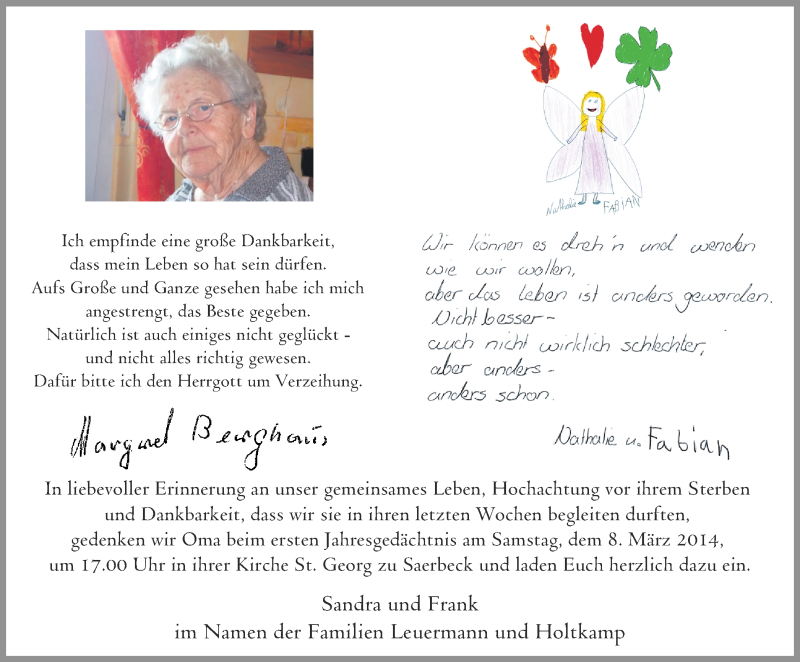 Nathalie FABIAN
Ich empfinde eine große Dankbarkeit,
dass mein Leben so hat sein dürfen.
Aufs Große und Ganze gesehen habe ich mich
angestrengt, das Beste gegeben.
Natürlich ist auch einiges nicht geglückt -
und nicht alles richtig gewesen.
Dafür bitte ich den Herrgott um Verzeihung.
Margret Berghaus
Wir können es dreh'n und wenden
wie wir wollen,
aber das Leben ist anders geworden.
Nicht besser -
auch nicht wirklich schlechter,
aber anders -
anders schon.
Nathalie u. Fabian
In liebevoller Erinnerung an unser gemeinsames Leben, Hochachtung vor ihrem Sterben
und Dankbarkeit, dass wir sie in ihren letzten Wochen begleiten durften,
gedenken wir Oma beim ersten Jahresgedächtnis am Samstag, dem 8. März 2014,
um 17.00 Uhr in ihrer Kirche St. Georg zu Saerbeck und laden Euch herzlich dazu ein.
Sandra und Frank
im Namen der Familien Leuermann und Holtkamp